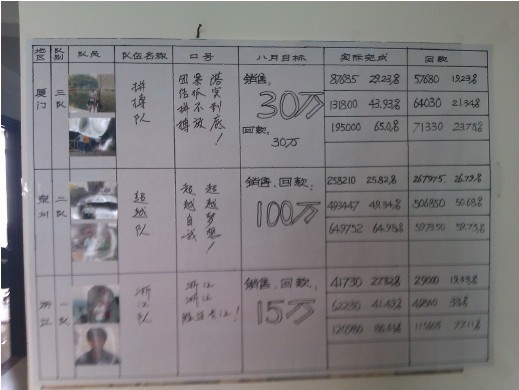 地区 队别 队员 队伍名称 口号 八月目标 实际完成 回款
厦门 三队 拼搏队
团结拼搏
永不放
到底!
销售:
30万
回款:
30万
87685 29.23% 57680 19.23%
131800 43.93% 64030 21.34%
195000 65.0% 71330 23.78%
泉州 二队 超越队
超越自我
超越梦想!
销售、回款:
100万
258210 25.82% 267975 26.79%
493447 49.34% 506850 50.68%
649752 64.98%
浙江 一队 浙江队
浙江
浙江
销售、回款:
15万
41730 27.82% 29000
62230